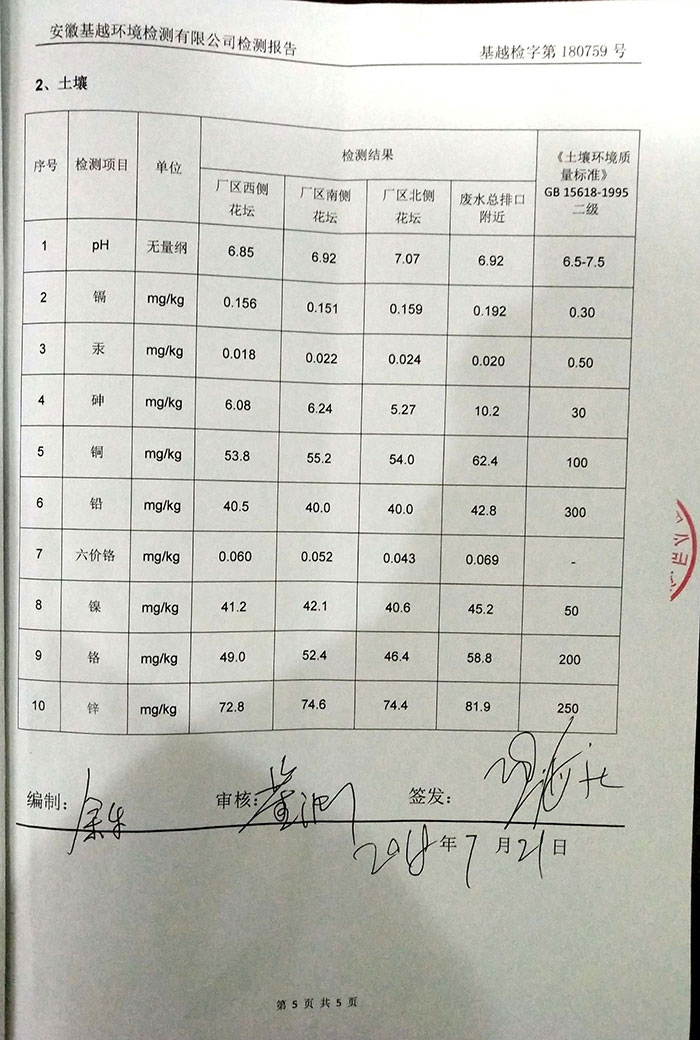 安徽基越环境检测有限公司检测报告
基越检字第 180759 号
2、土壤
序号 检测项目 单位 检测结果 《土壤环境质量标准》 GB 15618-1995 二级
厂区西侧花坛 厂区南侧花坛 厂区北侧花坛 废水总排口附近
1 pH 无量纲 6.85 6.92 7.07 6.92 6.5-7.5
2 镉 mg/kg 0.156 0.151 0.159 0.192 0.30
3 汞 mg/kg 0.018 0.022 0.024 0.020 0.50
4 砷 mg/kg 6.08 6.24 5.27 10.2 30
5 铜 mg/kg 53.8 55.2 54.0 62.4 100
6 铅 mg/kg 40.5 40.0 40.0 42.8 300
7 六价铬 mg/kg 0.060 0.052 0.043 0.069 -
8 镍 mg/kg 41.2 42.1 40.6 45.2 50
9 铬 mg/kg 49.0 52.4 46.4 58.8 200
10 锌 mg/kg 72.8 74.6 74.4 81.9 250
编制： 审核： 签发：
2018 年 7 月 21 日
第 5 页 共 5 页